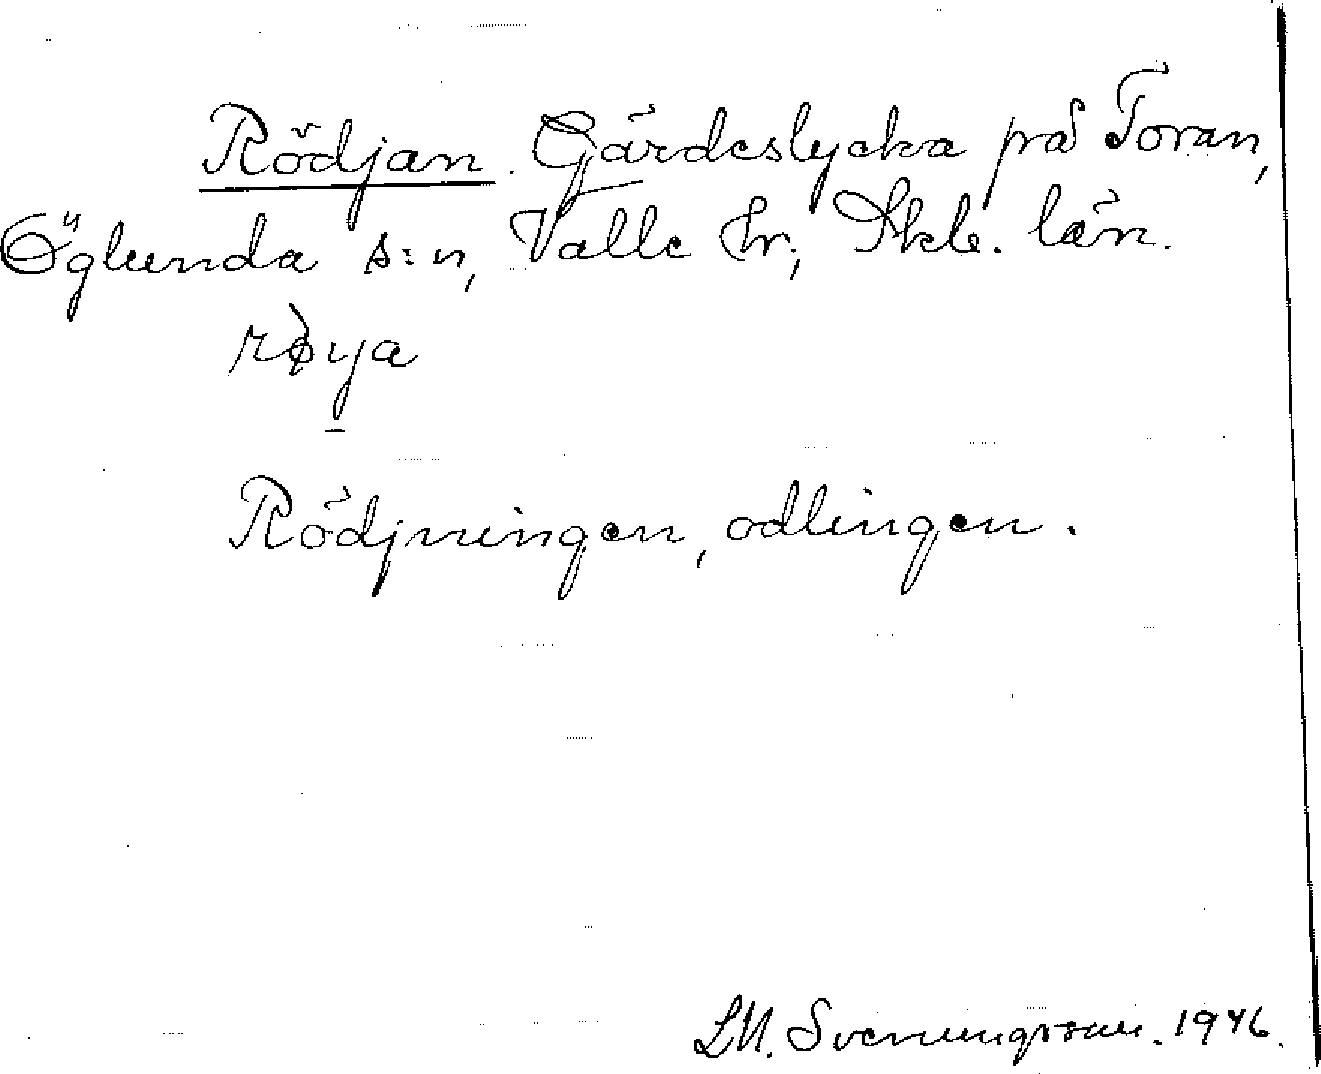 Rödjan. Gärdeslycka på Toran,
Öglunda s:n, Valle hr; Skb. län.
røya
Rödjningen, odlingen.
LM. Svenungsson. 1946.